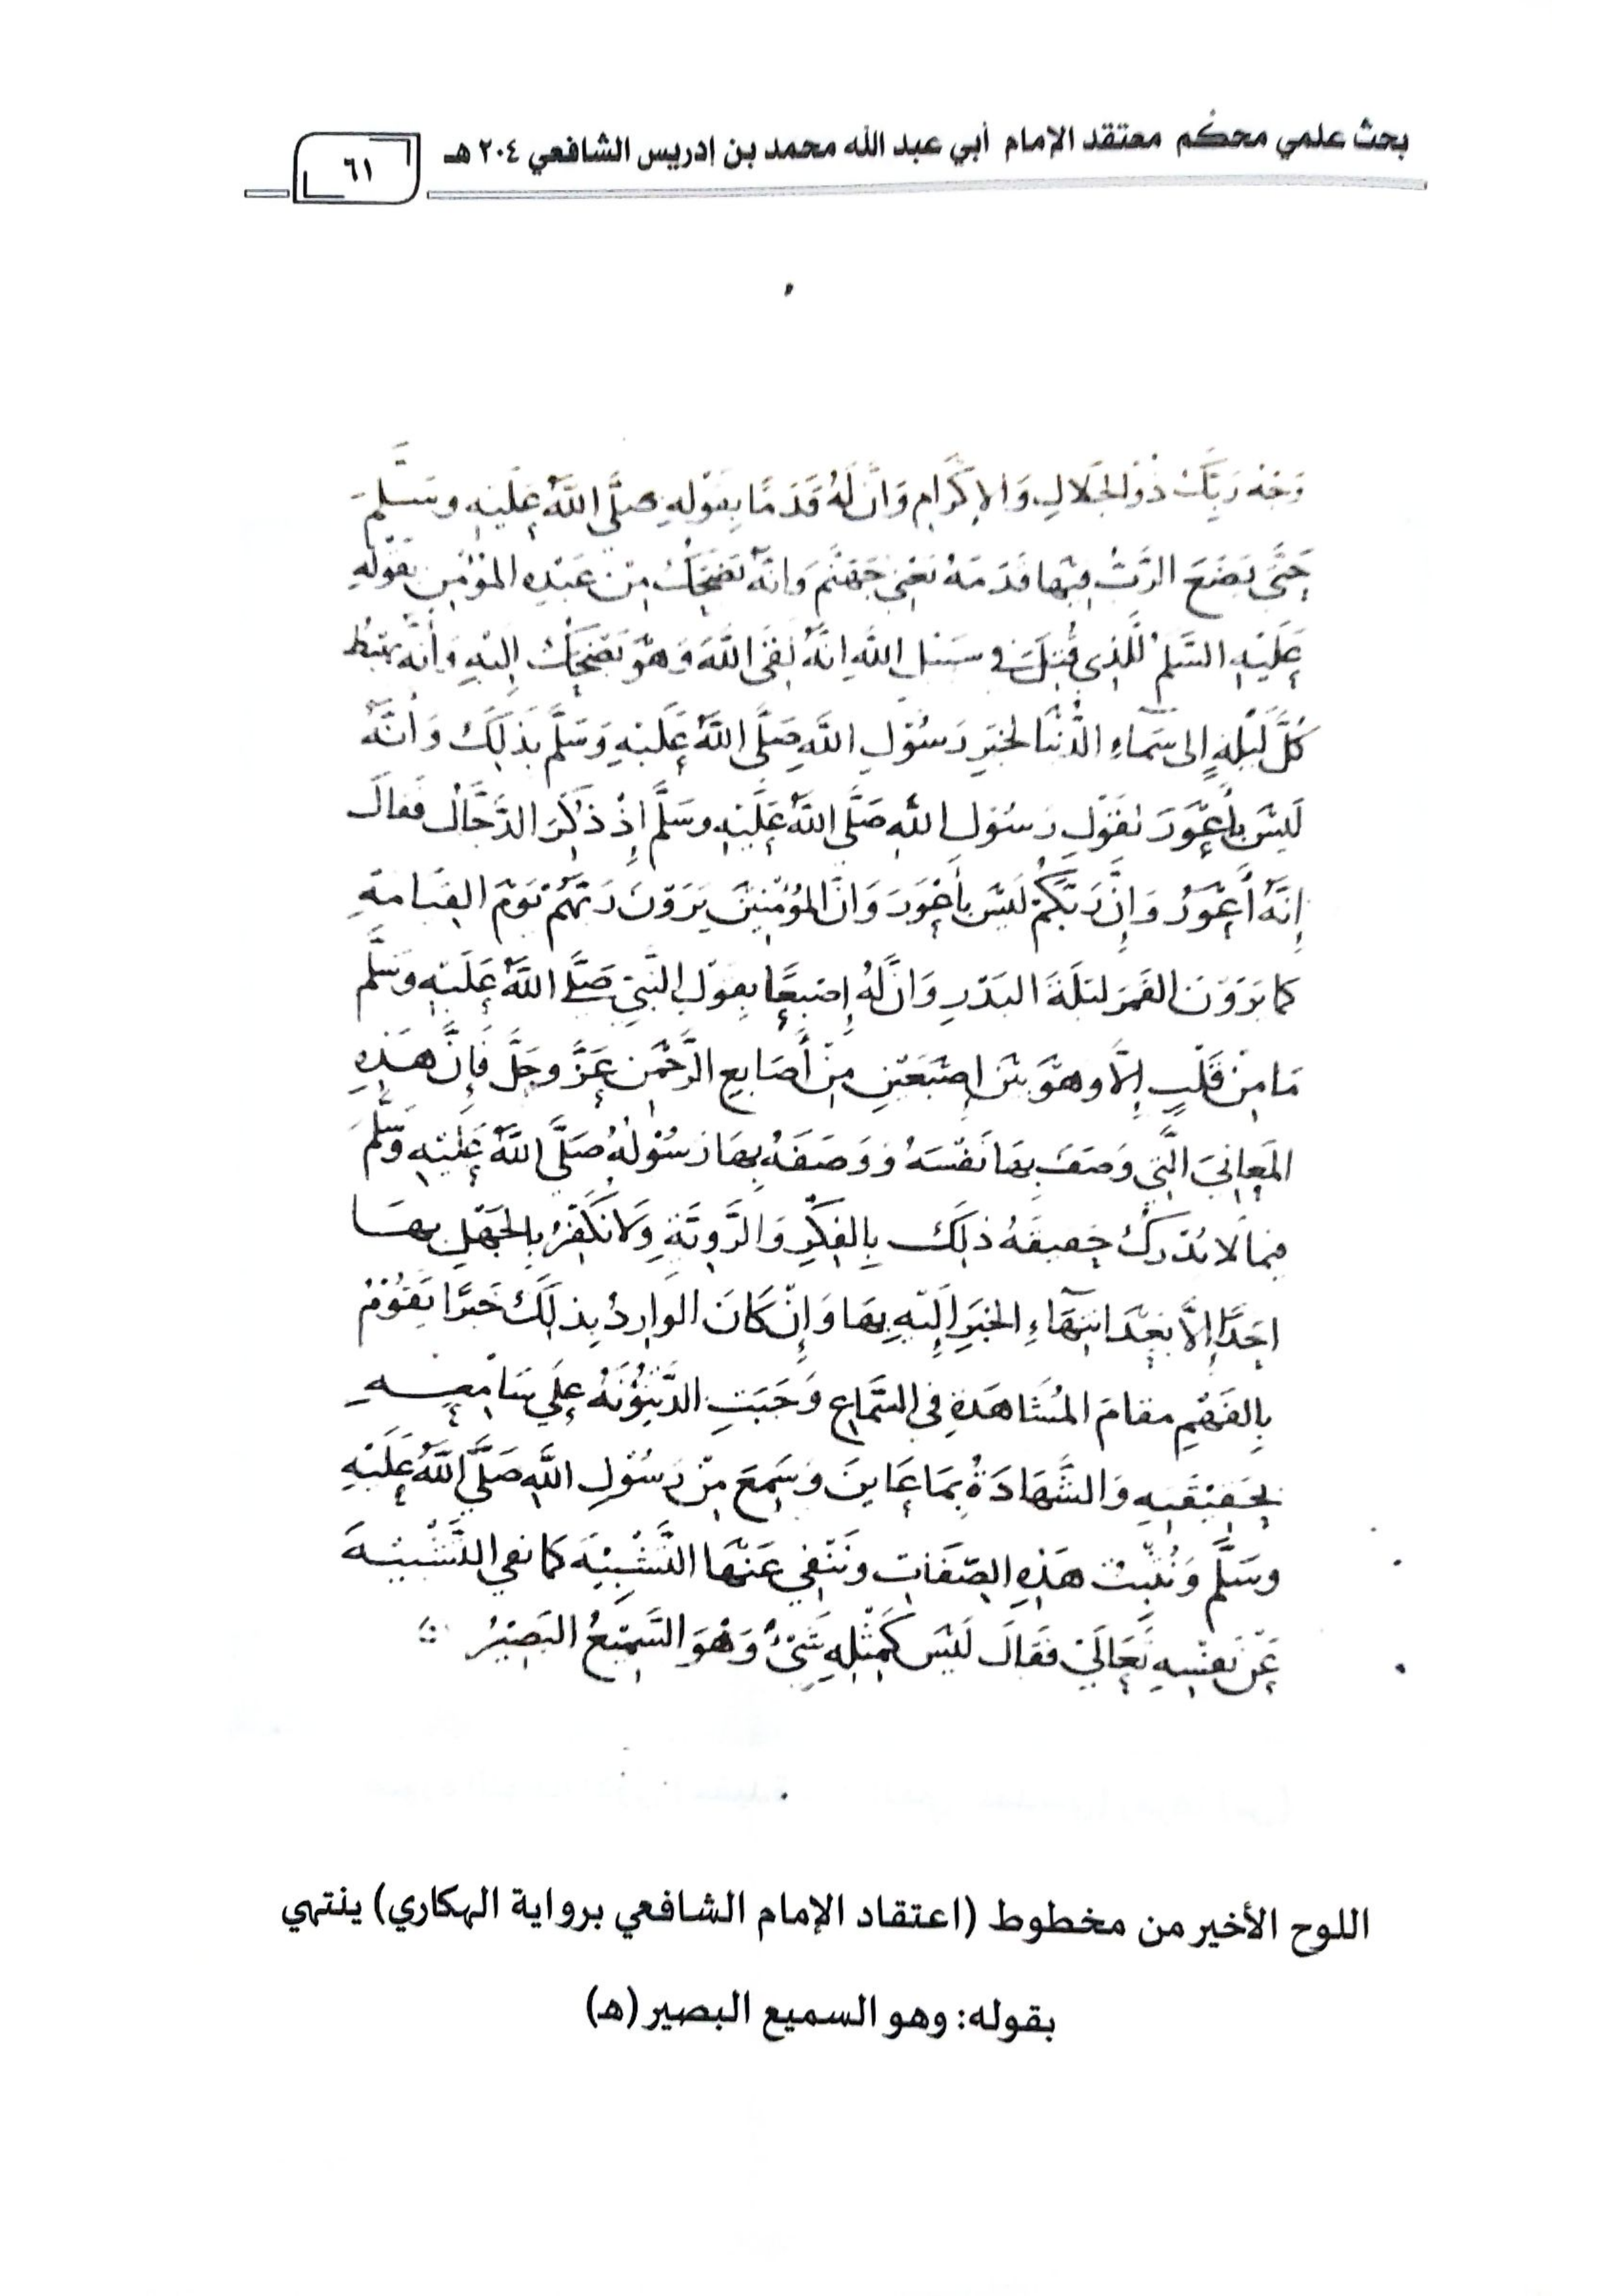 بحث علمي محكم معتقد الإمام أبي عبد الله محمد بن ادريس الشافعي ٢٠٤ هـ
٦١
وَجْهُ رَبِّكَ ذُو الجَلَالِ وَالإِكْرَامِ وَانَّ لَهُ قَدَمًا بِقَوْلِهِ صَلَّى اللَّهُ عَلَيْهِ وَسَلَّمَ
حَتَّى يَضَعَ الرَّبُّ فِيْهَا قَدَمَهُ يَعْنِي جَهَنَّمَ وَانَّهُ يَضْحَكُ مِنْ عَبْدِهِ المُؤْمِنِ بِقَوْلِهِ
عَلَيْهِ السَّلمُ لِلَّذِي قُتِلَ في سَبِيْلِ اللَّهِ انَّهُ لَقِيَ اللَّهَ وَهُوَ يَضْحَكُ اِلَيْهِ وَأَنَّهُ يَهْبِطُ
كُلَّ لَيْلَةٍ إِلى سَمَاءِ الدُّنْيَا لخَبَرِ رَسُوْلِ اللَّهِ صَلَّى اللَّهُ عَلَيْهِ وَسَلَّمَ بِذَلِكَ وَأَنَّهُ
لَيْسَ بِأَعْوَرَ بقَوْلِ رَسُوْلِ اللَّهِ صَلَّى اللَّهُ عَلَيْهِ وسَلَّمَ إِذْ ذَكَرَ الدَّجَّالَ فَقَالَ
إِنَّهُ أَعْوَرُ وَإِنَّ رَبَّكُمْ لَيْسَ بِأَعْوَرَ وَانَّ المُؤْمِنِيْنَ يَرَوْنَ رَبَّهُمْ يَوْمَ القِيَامَةِ
كَمَا يَرَوْنَ القَمَرَ لَيْلَةَ البَدْرِ وَانَّ لَهُ إِصْبَعًا بِقَوْلِ النَّبِيِّ صَلَّى اللَّهُ عَلَيْهِ وَسَلَّمَ
مَا مِنْ قَلْبٍ إِلَّا وهُوَ بَيْنَ اِصْبَعَيْنِ مِنْ أَصَابِعِ الرَّحْمَنِ عَزَّ وجَلَّ فَإِنَّ هَذِهِ
المَعَانِيَ الَّتِي وَصَفَ بِهَا نَفْسَهُ وَوَصَفَهُ بِهَا رَسُوْلُهُ صَلَّى اللَّهُ عَلَيْهِ وَسَلَّمَ
مِمَا لَا يُدْرَكُ حَقِيقَةُ ذَلِكَ بِالفِكْرِ وَالرَّوِيَّةِ وَلَا نُكَفِّرُ بِالجَهْلِ بِهَا
احَدًا إِلَّا بَعْدَ انْتِهَاءِ الخَبَرِ إِلَيْهِ بِهَا وَإِنْ كَانَ الوَارِدُ بِذَلِكَ خَبَرًا يَقُوْمُ
بِالفَهْمِ مقَامَ المُشَاهَدَةِ فِي السَّمَاعِ وَجَبَتِ الدَّيْنُوْنَةُ عَلَى سَامِعِهِ
بِحَقِيْقَتِهِ وَالشَّهَادَةُ بِمَا عَايَنَ وَسَمِعَ مِنْ رَسُوْلِ اللَّهِ صَلَّى اللَّهُ عَلَيْهِ
وسَلَّمَ وَنُثْبِتُ هَذِهِ الصِّفَاتِ ونَنْفِي عَنْهَا التَّشْبِيْهَ كَمَا نَفَى التَّشْبِيْهَ
عَنْ نَفْسِهِ تَعَالَى فَقَالَ لَيْسَ كَمِثْلِهِ شَيْءٌ وَهُوَ السَّمِيْعُ البَصِيْرُ
اللوح الأخير من مخطوط (اعتقاد الإمام الشافعي برواية الهكاري) ينتهي
بقوله: وهو السميع البصير (هـ)